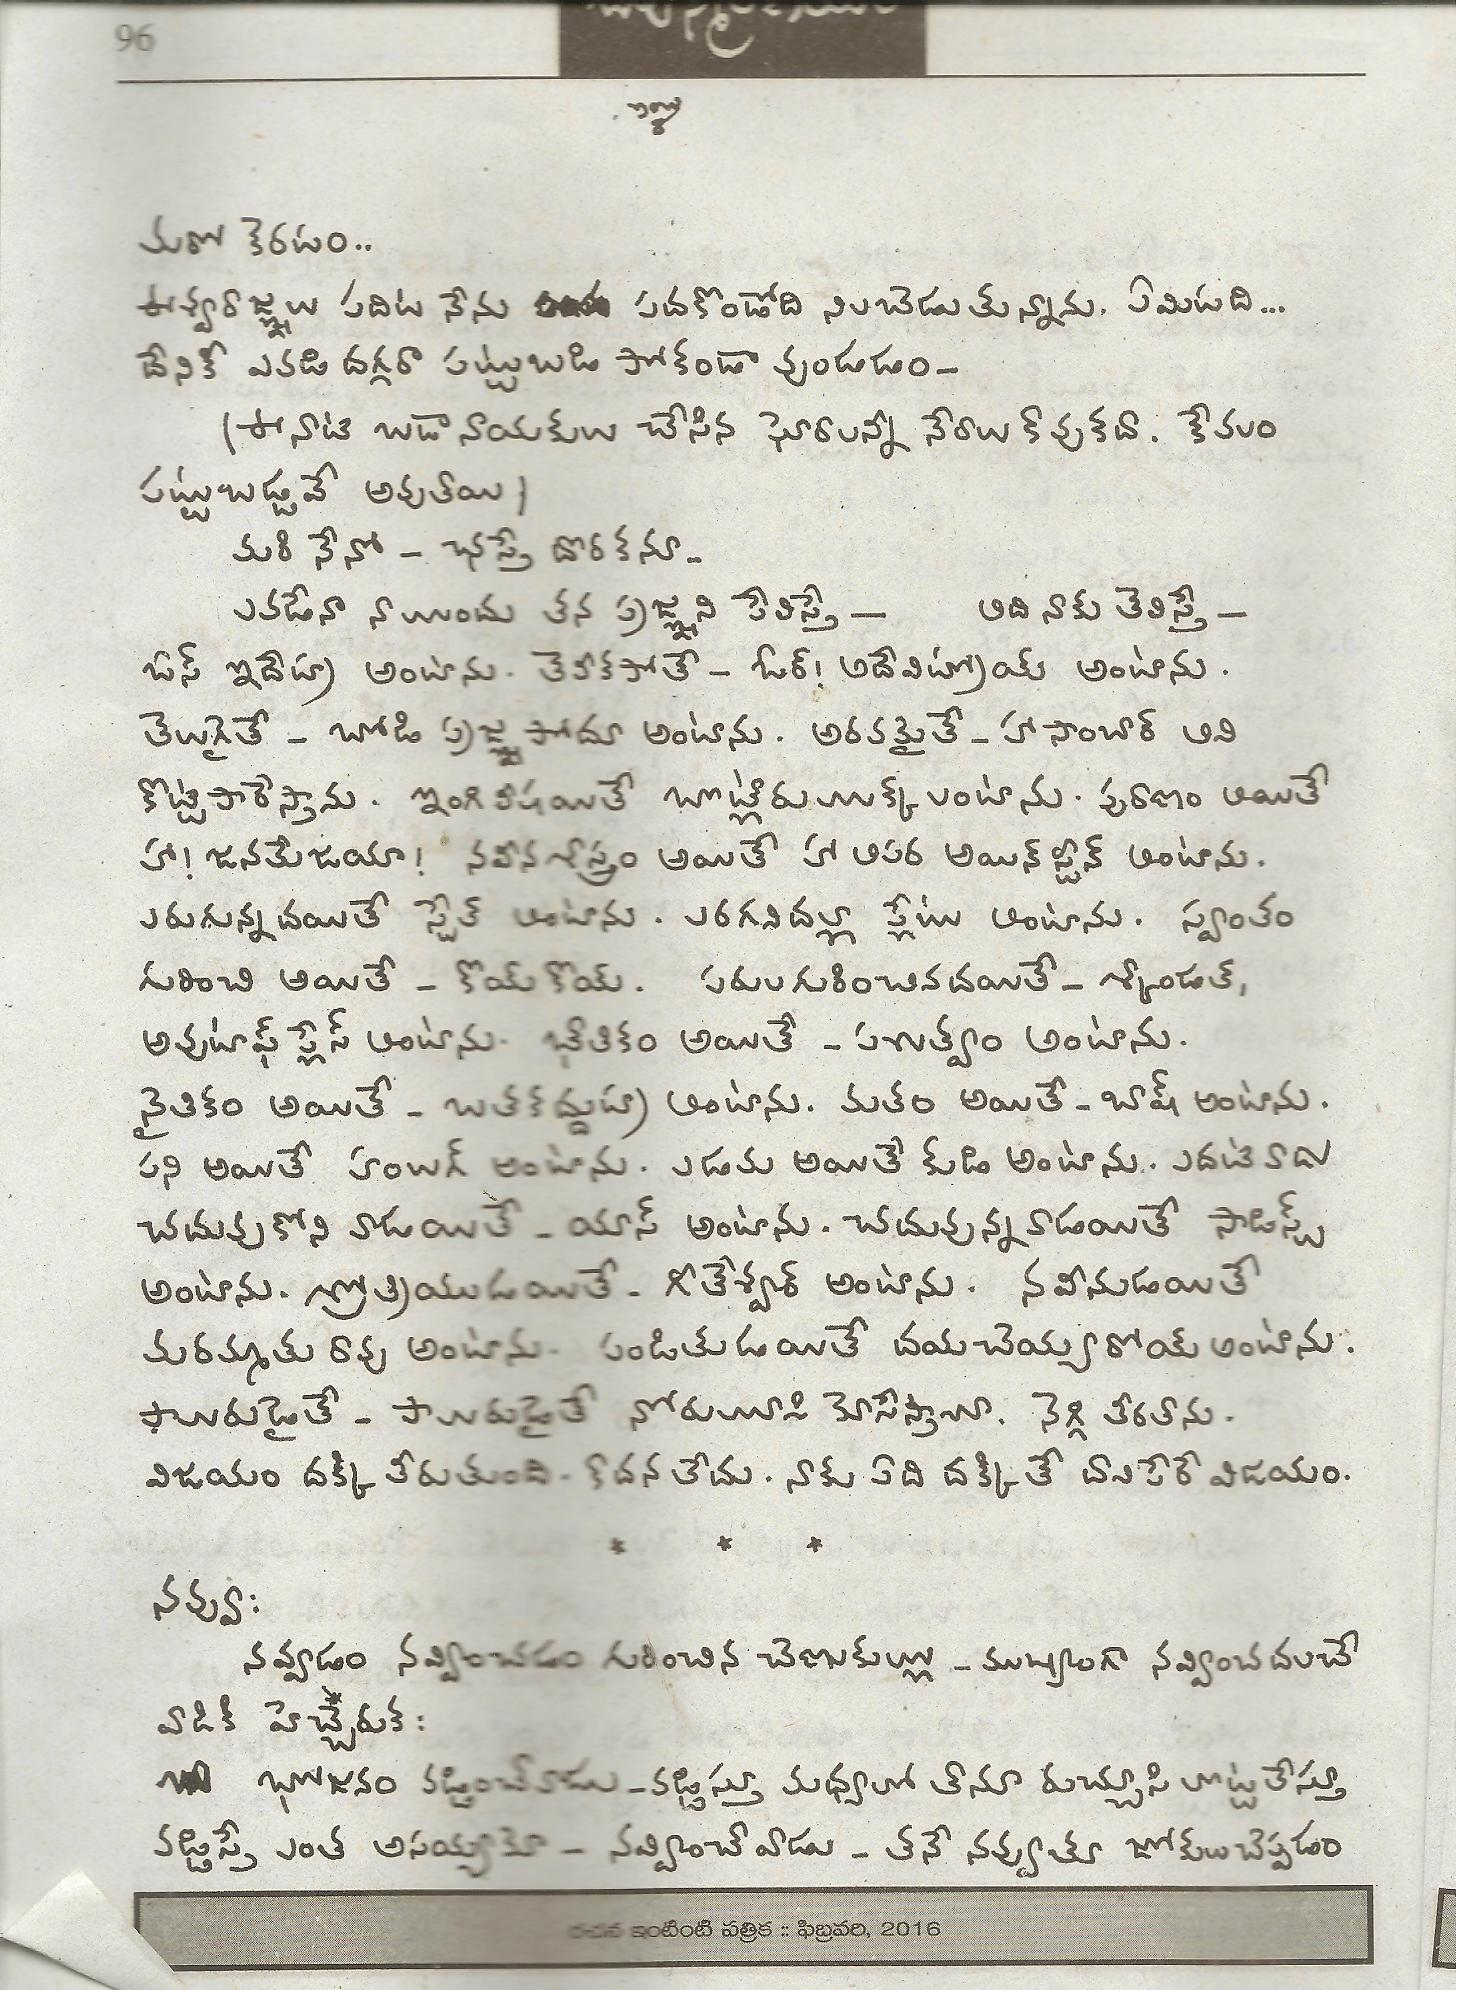 96
మరో కెరటం..
పదిట నేను పదకొండోది నిలబెడుతున్నాను. ఏమిటది...
దేనికీ ఎవడి దగ్గరా పట్టుబడి పోకుండా వుండడం–
(ఈనాటి బడా నాయకులు చేసిన ఘోరాలన్నీ నేరాలు కావుకదా. కేవలం
పట్టుబడ్డవే అవుతాయి)
మరి నేనో – ఛస్తే దొరకను–
ఎవడేనా నా ముందు తన ప్రజ్ఞని పేలిస్తే – అది నాకు తెలిస్తే –
ఓస్ ఇదేనా అంటాను. తెలీకపోతే – ఓర్! అంటాను.
తెలుగైతే – బోడి ప్రజ్ఞ పోదూ అంటాను. అరవమైతే – హా సాంబార్ అని
కొట్టిపారేస్తాను. ఇంగిలీషయితే బట్లేరు ముక్కలంటాను. పురాణం అయితే
హా! జనమేజయా! నవీన శాస్త్రం అయితే హా అపర అయిన్‌స్టీన్ అంటాను.
ఎరుగున్నదయితే స్టేల్ అంటాను. ఎరగనిదల్లా స్లేము అంటాను. స్వంతం
గురించి అయితే – కొయ్ కొయ్. పరుల గురించినదయితే – స్కాండల్,
అవుటాఫ్ ప్లేస్ అంటాను. భౌతికం అయితే – పశుత్వం అంటాను.
నైతికం అయితే – బతకద్దుటా అంటాను. మతం అయితే – బాష్ అంటాను.
పని అయితే హంబగ్ అంటాను. ఎడమ అయితే కుడి అంటాను. ఎదటివాడు
చదువుకోని వాడయితే – యాస్ అంటాను. చదువున్నవాడయితే సాడిస్టు
అంటాను. శ్రోత్రియుడయితే – గీతేశ్వార్ అంటాను. నవీనుడయితే
మరమ్మతు రావు అంటాను. పండితుడయితే దయచెయ్యరోయ్ అంటాను.
పామరుడైతే – పామరుడైతే నోరుమూసి మోసేస్తాను. నెగ్గి తీరతాను.
విజయం దక్కి తీరుతుంది. కాదనలేదు. నాకు ఏది దక్కితే దాని పేరే విజయం.
* * *
నవ్వు:
నవ్వడం నవ్వించడం గురించిన చెణుకుల్లు – ముఖ్యంగా నవ్వించదలచే
వాడికి హెచ్చరిక:
భోజనం వడ్డించేవాడు – వడ్డిస్తూ మధ్యలో తానూ రుచ్చూసి లొట్టలేస్తూ
వడ్డిస్తే ఎంత అసయ్యమో – నవ్వించే వాడు – తనే నవ్వుతూ జోకులు చెప్పడం
రచన ఇంటింటి పత్రిక :: ఫిబ్రవరి, 2016